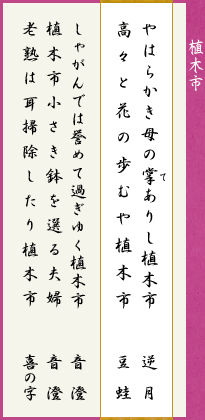 植木市
やはらかき母の掌ありし植木市　逆月
て
高々と花の歩むや植木市　豆蛙
しゃがんでは誉めて過ぎゆく植木市　音澄
植木市小さき鉢を選る夫婦　音澄
老熟は耳掃除したり植木市　喜の字